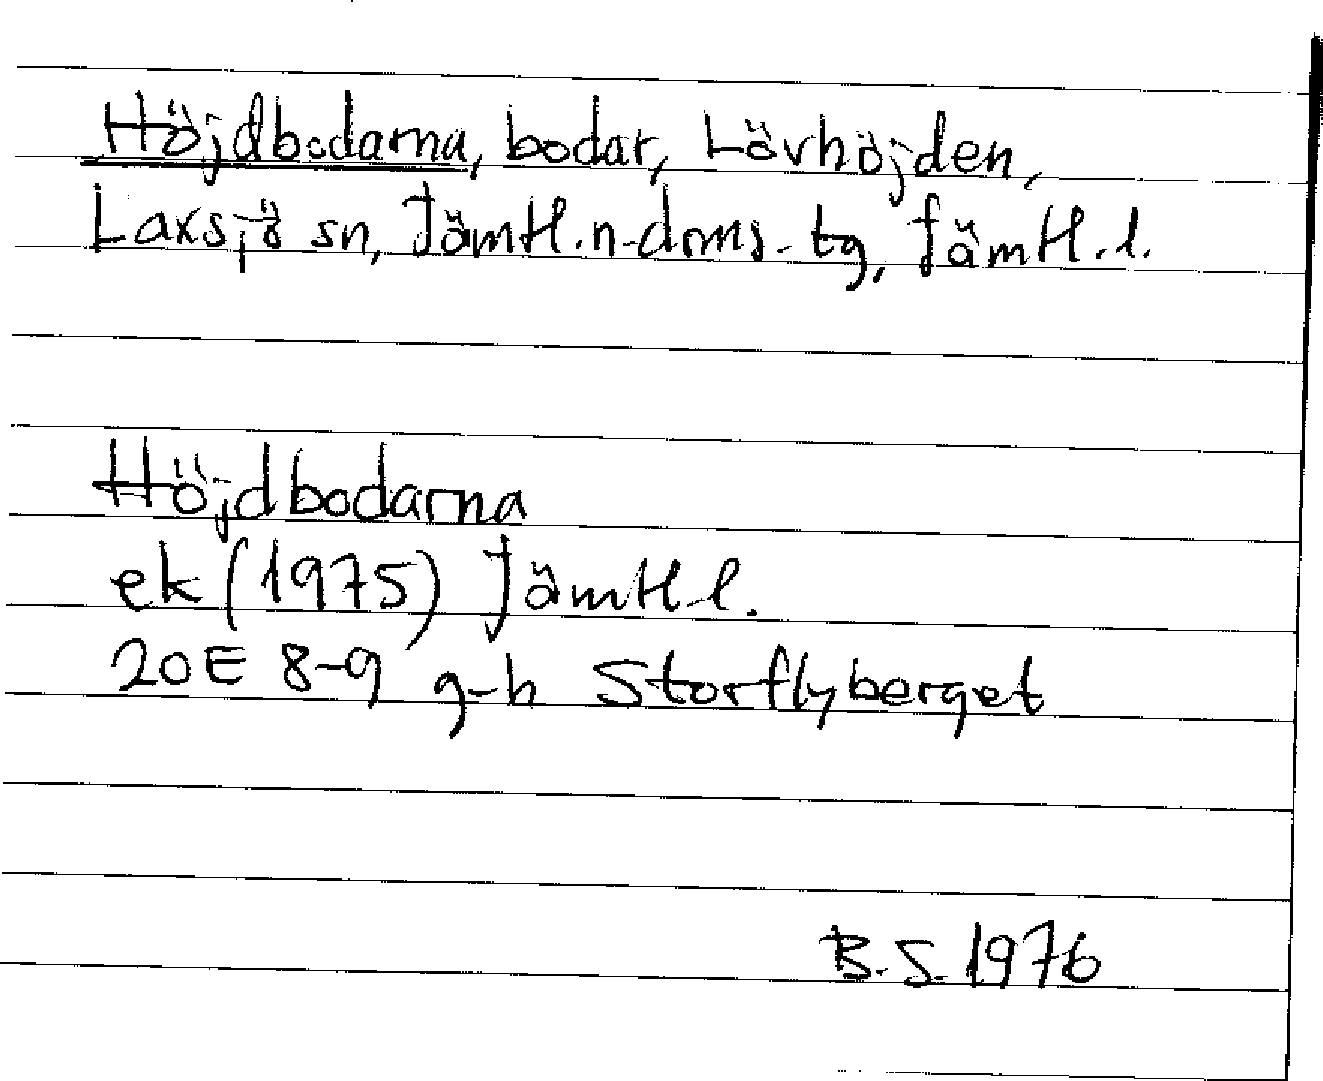 Höjdbodarna, bodar, Lövhöjden,
Laxsjö sn, Jämtl.n-doms-tg, Jämtl.l.
Höjdbodarna
ek (1975) Jämtl.l.
20E 8-9 g-h Storflyberget
B.S. 1976